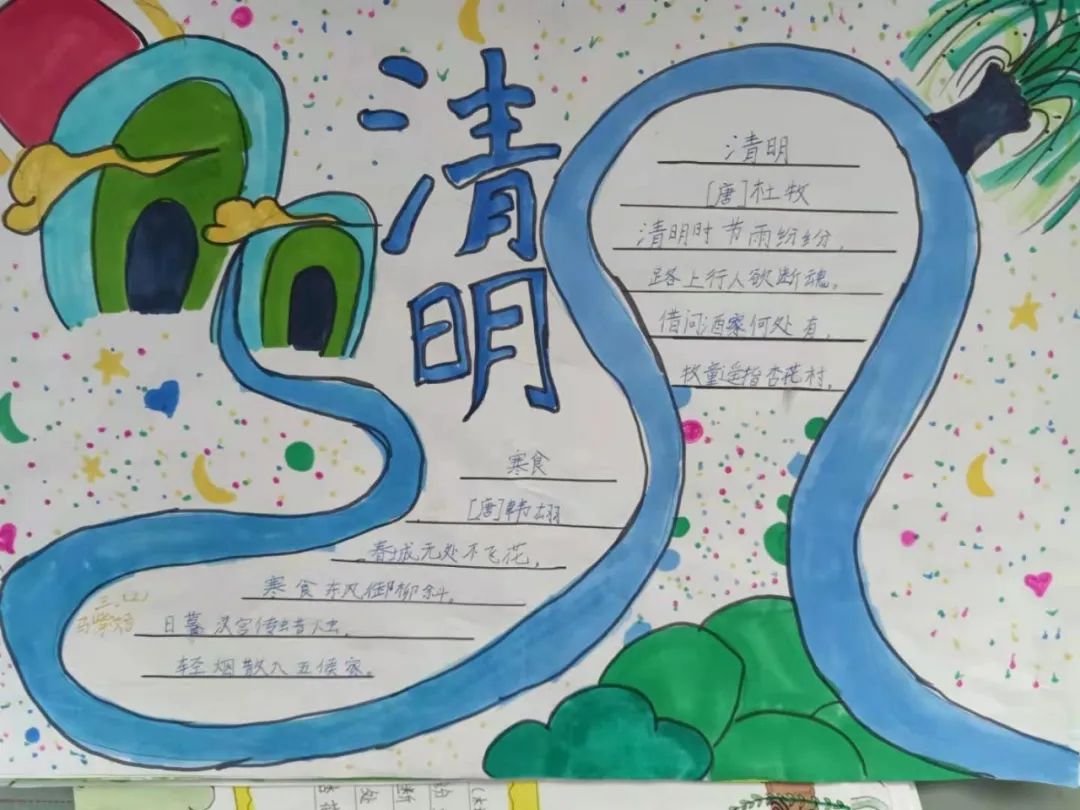 清明
清明
[唐]杜牧
清明时节雨纷纷,
路上行人欲断魂。
借问酒家何处有,
牧童遥指杏花村。
寒食
[唐]韩翃
春城无处不飞花,
寒食东风御柳斜。
日暮汉宫传蜡烛,
轻烟散入五侯家。
三.(2)